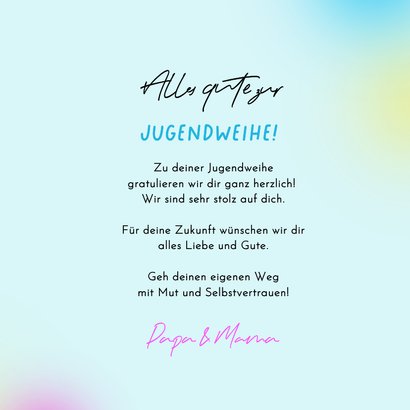 Alles gute zur
JUGENDWEIHE!
Zu deiner Jugendweihe
gratulieren wir dir ganz herzlich!
Wir sind sehr stolz auf dich.
Für deine Zukunft wünschen wir dir
alles Liebe und Gute.
Geh deinen eigenen Weg
mit Mut und Selbstvertrauen!
Papa & Mama